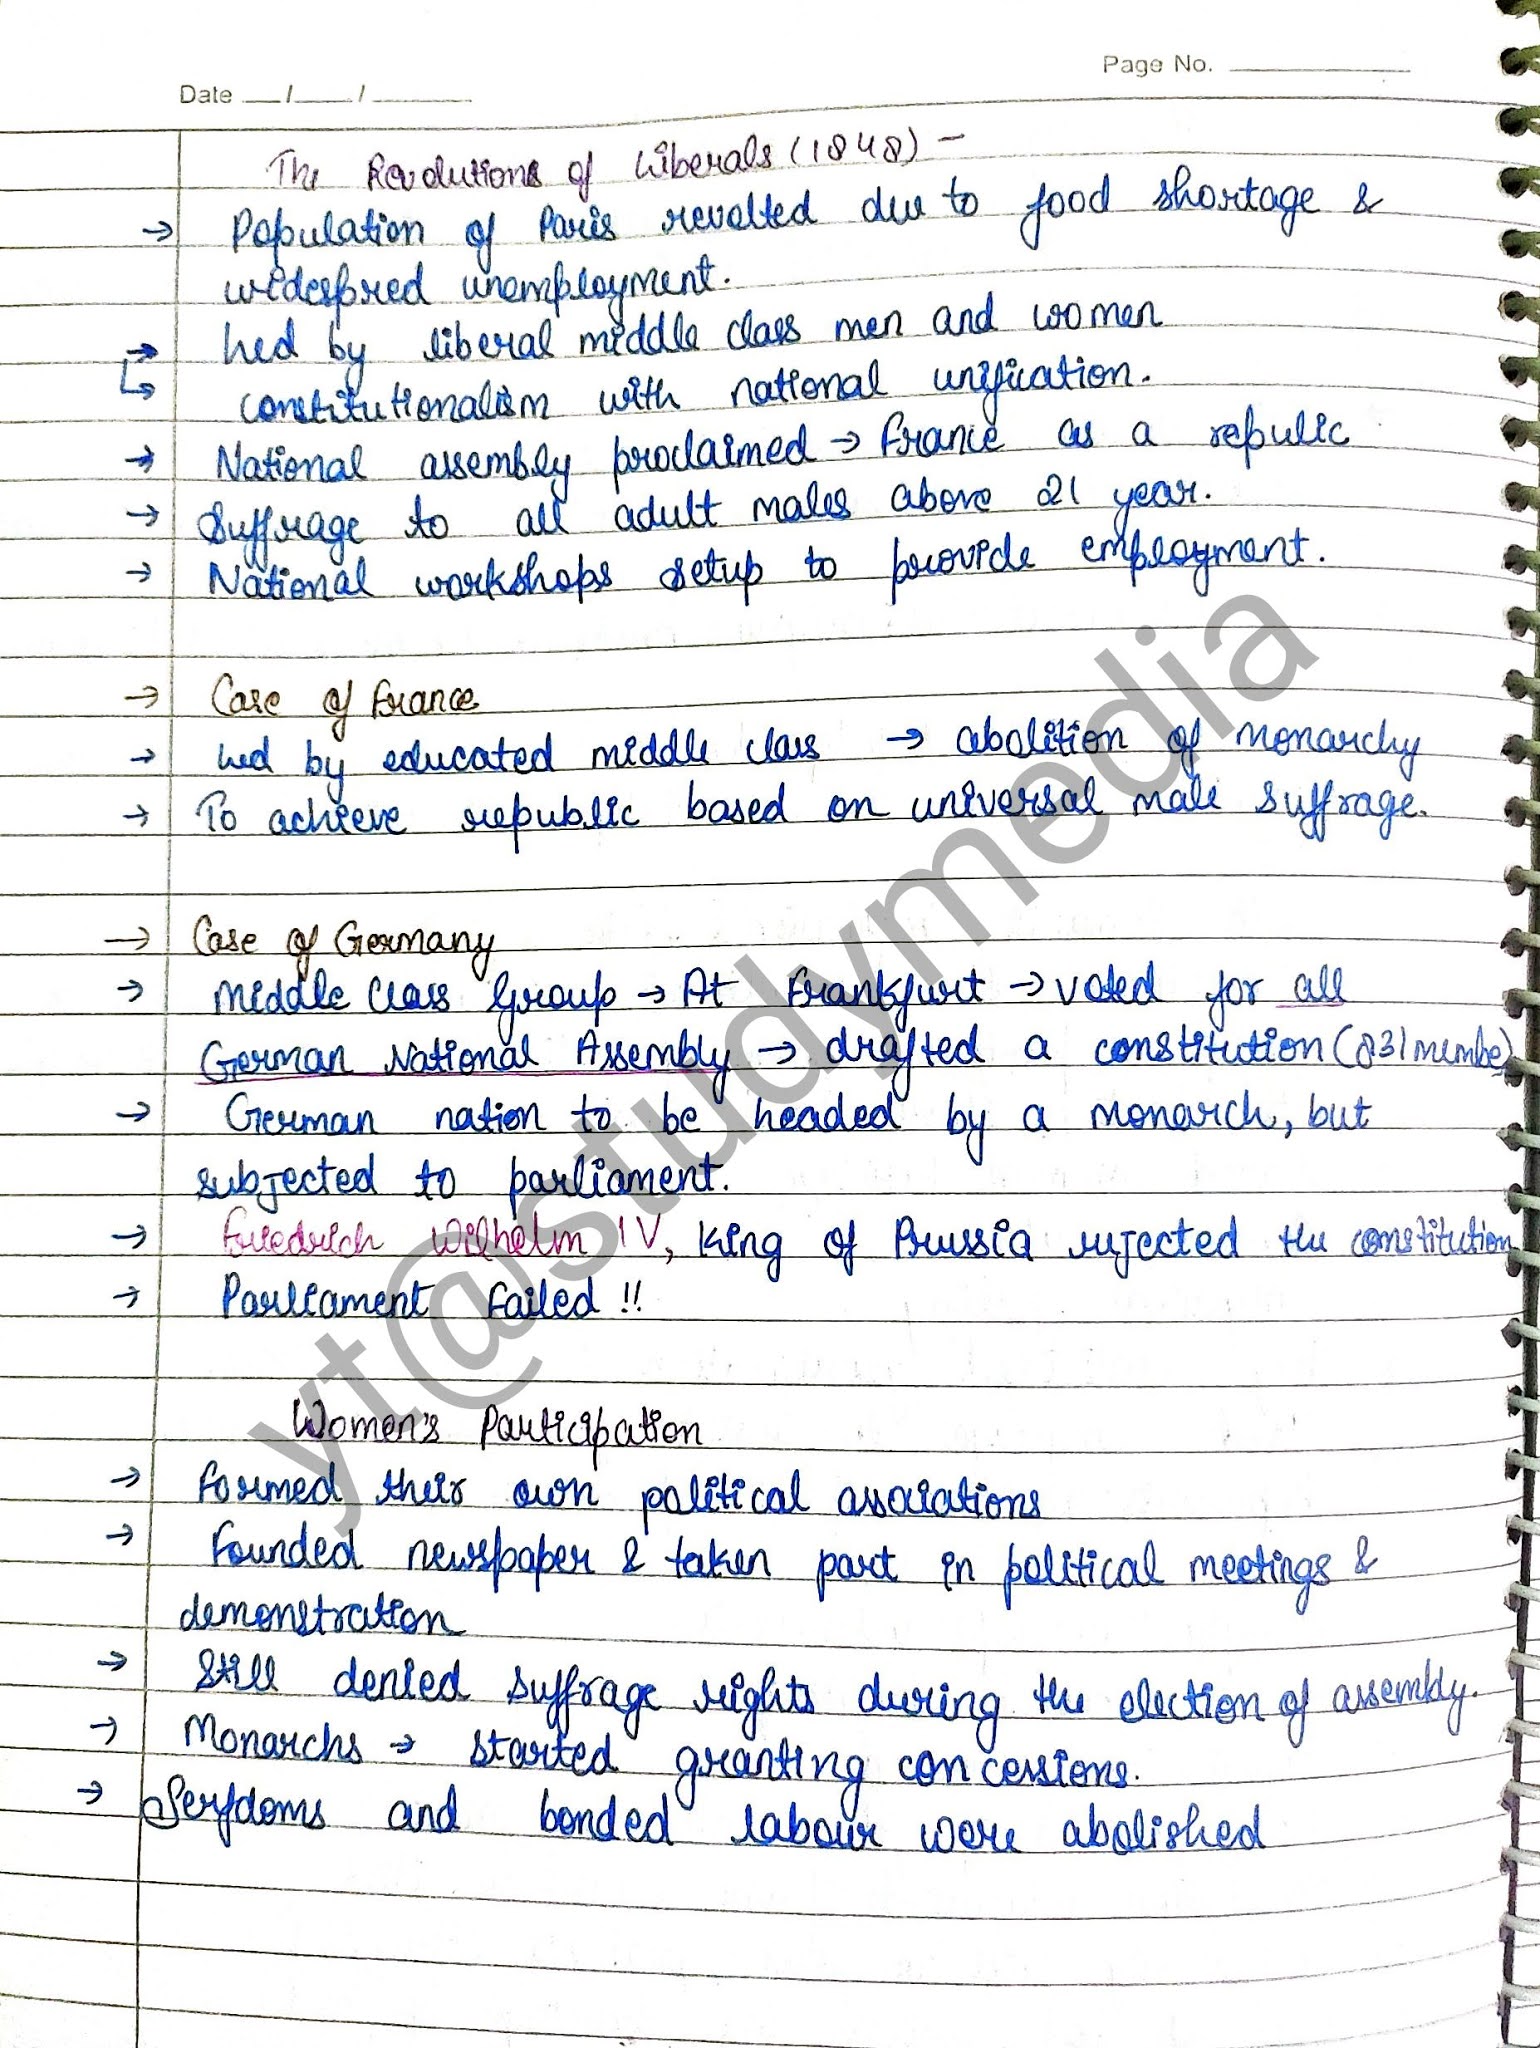 Page No.
Date __/__/____
The Revolutions of Liberals (1848) -
→ Population of Paris revolted due to food shortage &
widespred unemployment.
→ Led by liberal middle class men and women
↳ constitutionalism with national unification.
→ National assembly proclaimed → France as a repulic
→ Suffrage to all adult males above 21 year.
→ National workshops setup to provide employment.
→ Case of France
→ Led by educated middle class → abolition of monarchy
→ To achieve republic based on universal male suffrage.
→ Case of Germany
→ Middle Class Group → At Frankfurt → voted for all
German National Assembly → drafted a constitution (831 membe)
→ German nation to be headed by a monarch, but
subjected to parliament.
→ Friedrich Wilhelm IV, King of Prussia rejected the constitution
→ Parliament failed !!
Women's Participation
→ Formed their own political associations
→ Founded newspaper & taken part in political meetings &
demonstration
→ Still denied suffrage rights during the election of assembly.
→ Monarchs → started granting concessions.
→ Serfdoms and bonded labour were abolished
yt@studymedia